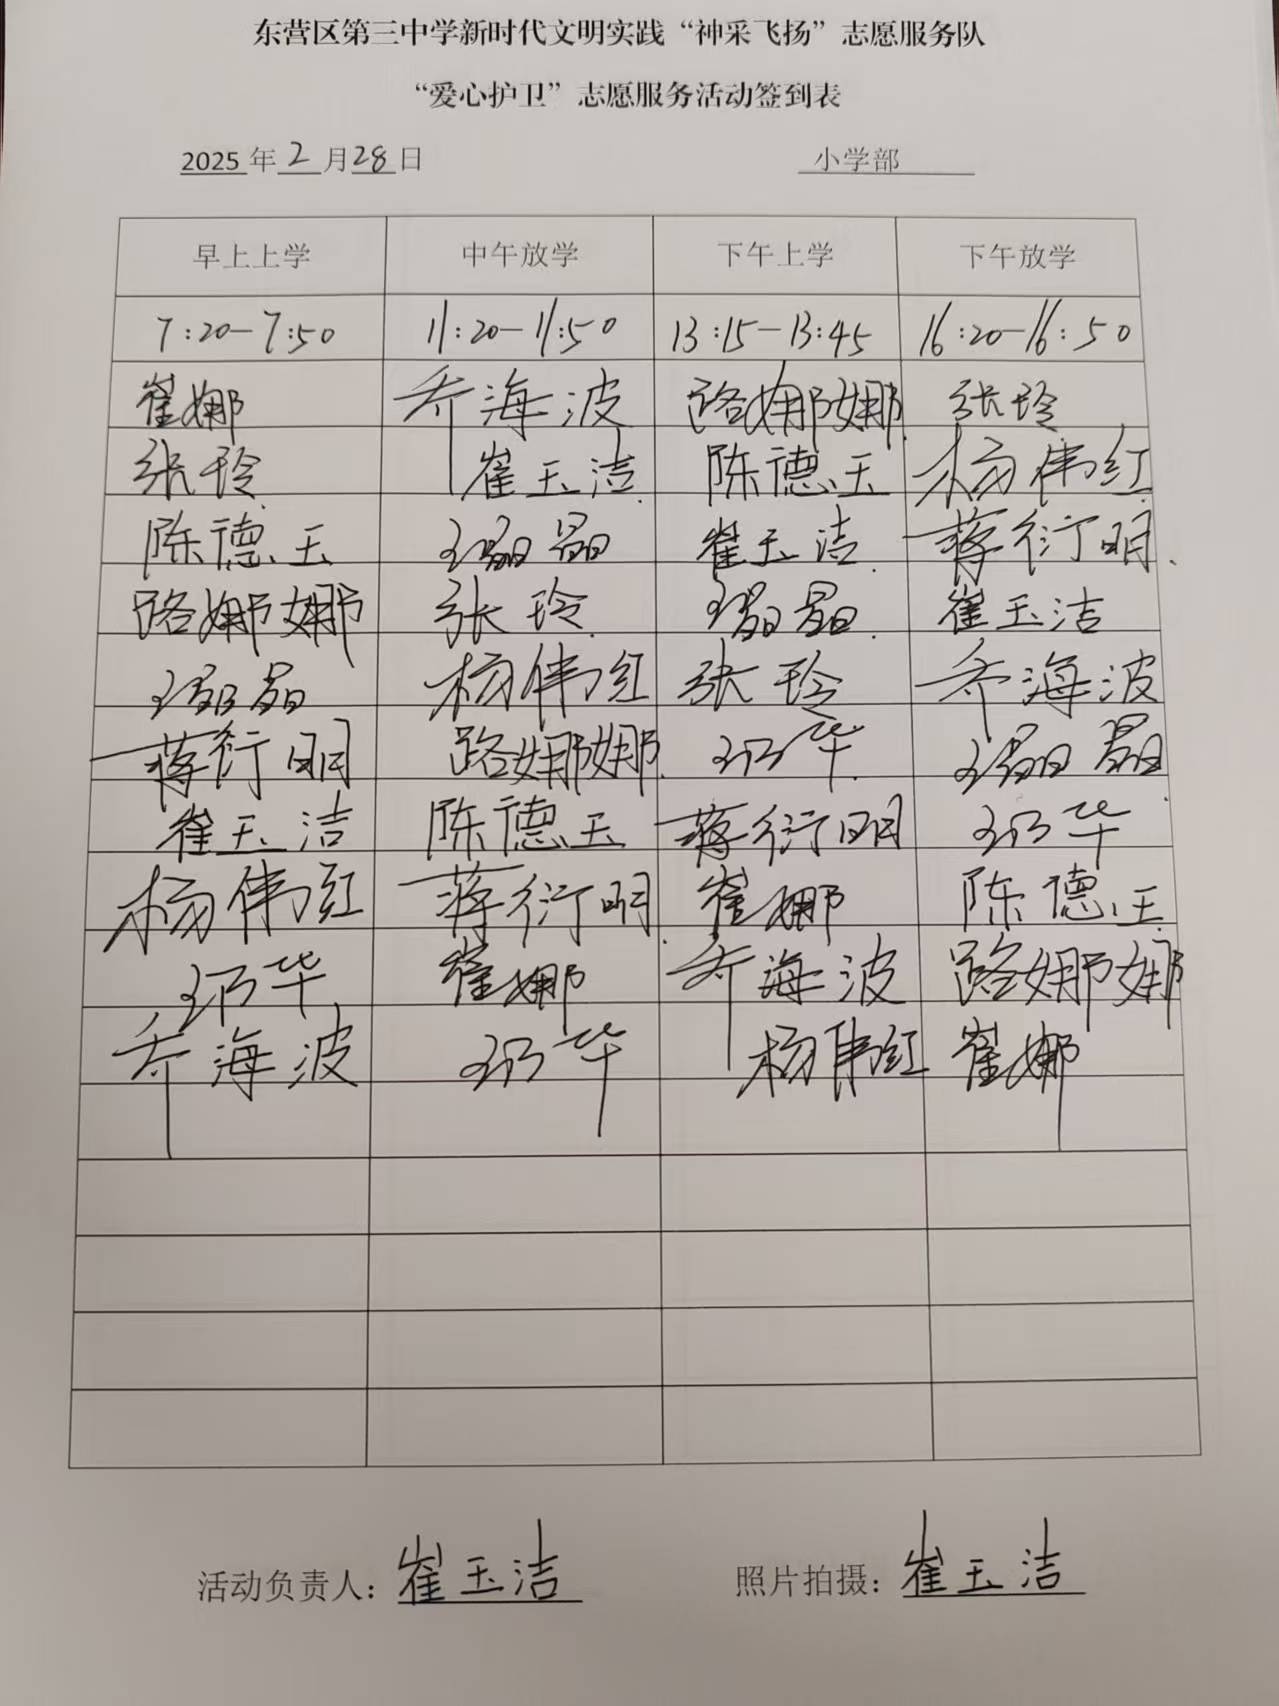 东营区第三中学新时代文明实践“神采飞扬”志愿服务队
“爱心护卫”志愿服务活动签到表
2025年2月28日 小学部
早上上学 中午放学 下午上学 下午放学
7:20-7:50 11:20-11:50 13:15-13:45 16:20-16:50
崔娜 乔海波 路娜娜 张玲
张玲 崔玉洁 陈德玉 杨伟红
陈德玉 王晶晶 崔玉洁 蒋衍明
路娜娜 张玲 王晶晶 崔玉洁
王晶晶 杨伟红 张玲 乔海波
蒋衍明 路娜娜 华 王晶晶
崔玉洁 陈德玉 蒋衍明 华
杨伟红 蒋衍明 崔娜 陈德玉
华 崔娜 乔海波 路娜娜
乔海波 华 杨伟红 崔娜
活动负责人：崔玉洁 照片拍摄：崔玉洁